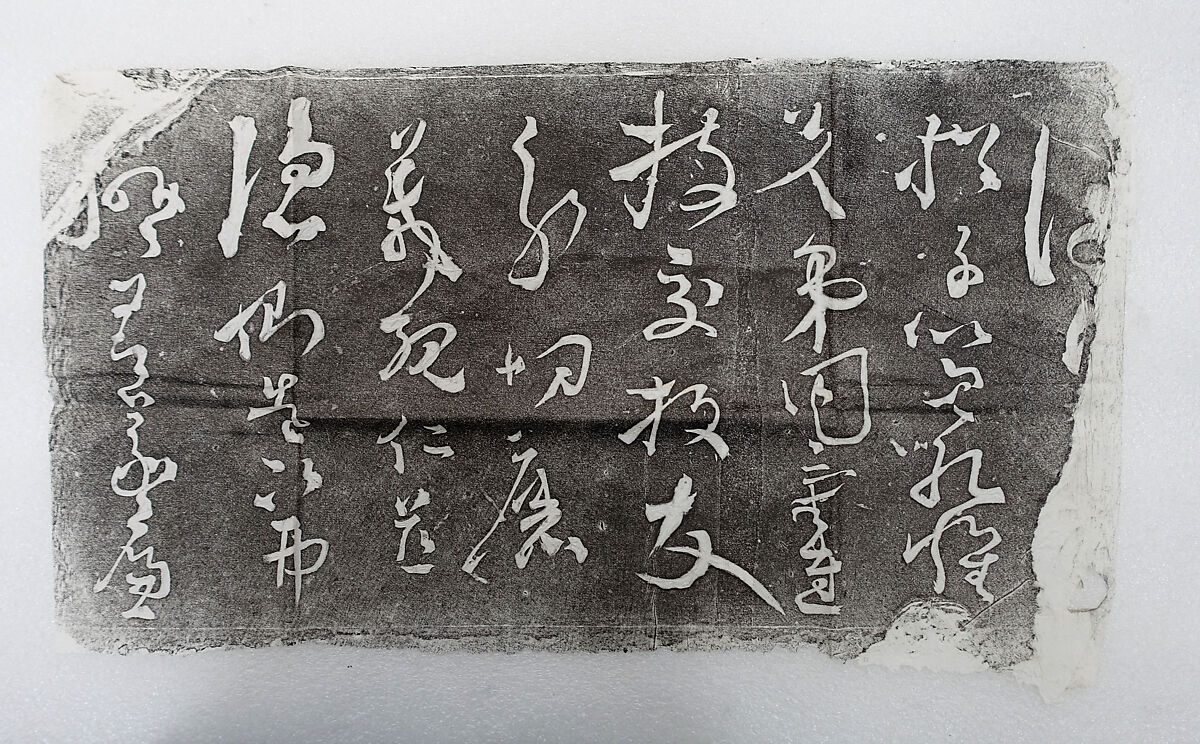 猶子比兒孔懷
兄弟同氣連
枝交投友
分切磨
箴規仁慈
隱惻造次弗
離節義廉